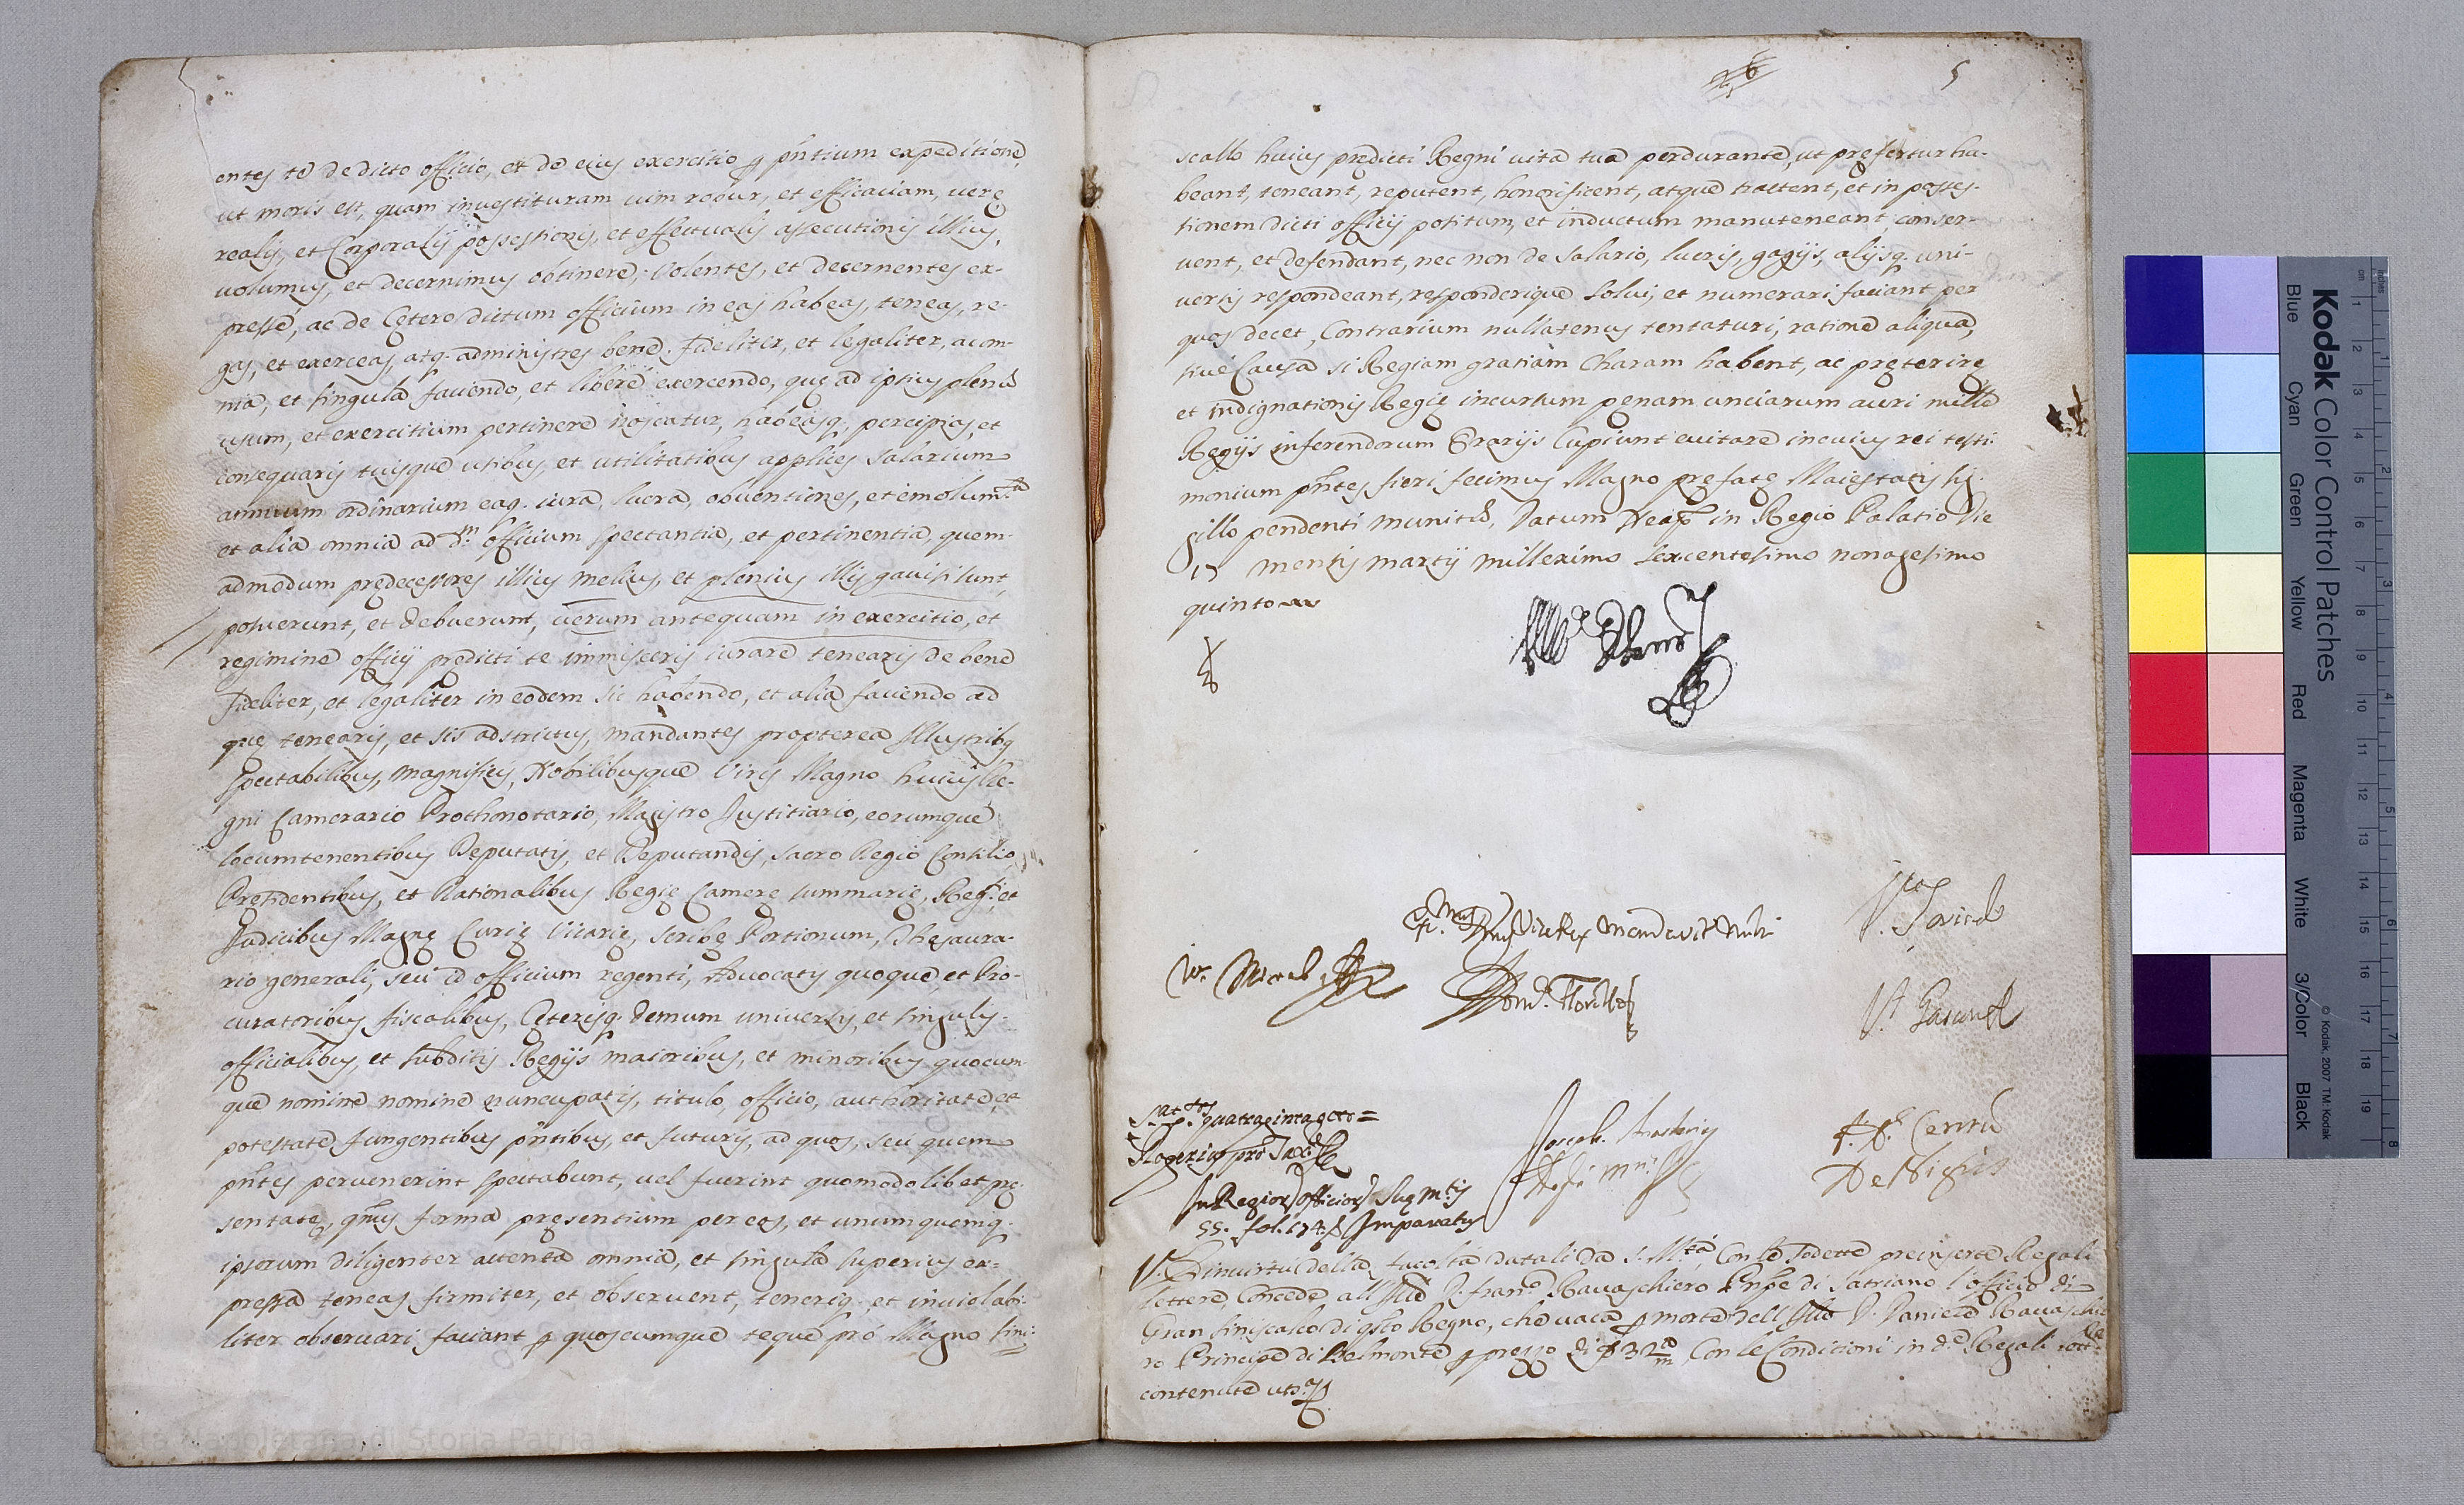 entes te de dicto officio, et de eius exercitio p pñtium expeditione,
ut moris est, quam investituram vim robur, et efficaciam, verę
realis, et Corporalis possessionis, et effectualis assecutionis illius,
volumus, et decernimus obtinere; Volentes, et decernentes ex-
presse, ac de Cętero dictum officium in eas habeas, teneas, re-
gas, et exerceas, atq. administres bene. fideliter, et legaliter, ac om-
nia, et singula faciendo, et libere exercendo, quę ad ipsius plenũ
usum, et exercitium pertinere noscatur, habeasq, percipias, et
consequaris tuisque usibus, et utilitatibus applices salarium
annuum ordinarium eaq. iura, lucra, obventiones, et emolum.ta
et alia omnia ad d.m officium spectantia, et pertinentia, quem-
admodum prędecessores illius melius, et plenius illis gavisi sunt,
potuerunt, et debuerunt, verum antequam in exercitio, et
regimine officij prędicti te immisceris iurare tenearis de bene
fideliter, et legaliter in eodem sic habendo, et alia faciendo ad
quę tenearis, et sis adstrictus, mandantes propterea Illustribꝫ
spectabilibus, Magnificis, Nobilibusque Viris Magno huius Re-
gni Camerario Prothonotario, Magistro Justitiario, eorumque
locumtenentibus Deputatis, et Deputandis, sacro Regio Consilio,
Pręsidentibus, et Rationalibus Regię Camerę summarię, Reg.ti, et
Judicibus Magnę Curię Vicarię, scribę Portionum, Thesaura-
rio generali, seu id officium regenti, Advocatis quoque et Pro-
curatoribus fiscalibus, Cęterisq. demum universis, et singulis
officialibus, et subditis Regijs maioribus, et minoribus quocum-
que nomine nomine nuncupatis, titulo, officio, authoritate, et
potestate fungentibus pñtibus, et futuris, ad quos, seu quem
pñtes pervenerint spectabunt, vel fuerint quomodolibet prę-
sentatę, forma pręsentium per eos, et unumquemq.
ipsorum diligenter attenta omnia, et singula superius ex-
pressa teneas firmiter, et observent, teneriq. et inviolabi-
liter observari faciant p quoscumque teque pro Magno sini-
5
scallo huius prędicti Regni vita tua perdurante, ut pręfertur ha-
beant, teneant, reputent, honorificent, atque tractent, et in posses-
sionem dicti officij positum, et inductum manuteneant, conser-
vent, et defendant, nec non de salario, lucris, gagijs, alijsq. uni-
versis respondeant, responderique solvi, et numerari faciant per
quos decet, Contrarium nullatenus tentaturi, ratione aliqua,
sive Causa si Regiam gratiam Charam habent, ac pręterire
et indignationis Regię incursum penam unciarum auri mille
Regijs inferendorum Erarijs Cupiunt evitare in cuius rei testi-
monium pñtes fieri fecimus Magno pręfatę Maiestatis si-
gillo pendenti munitas, Datum Neap. in Regio Palatio Die
17 mensis martij millesimo sexcentesimo nonagesimo
quinto
Vicerex mandavit mihi
quatraginta octo =
Rogerius pro Tax.
In Regior officior suę M.tis
55. fol. 174. Imparatus
V. E. in virtù della facoltà datali da S. M.tà, Con le sodette preinserte Regali
lettere, Concede all'Ill.e D. Fran.co Ravaschiero Pnpe di Satriano l'officio di
Gran siniscalco di qsto Regno, che vaca p morte dell'Ill.e D. Daniele Ravaschie
ro Principe di Belmonte p prezzo di 32 m Con le Conditioni in d.e Regali lett.e
contenute ut s.a